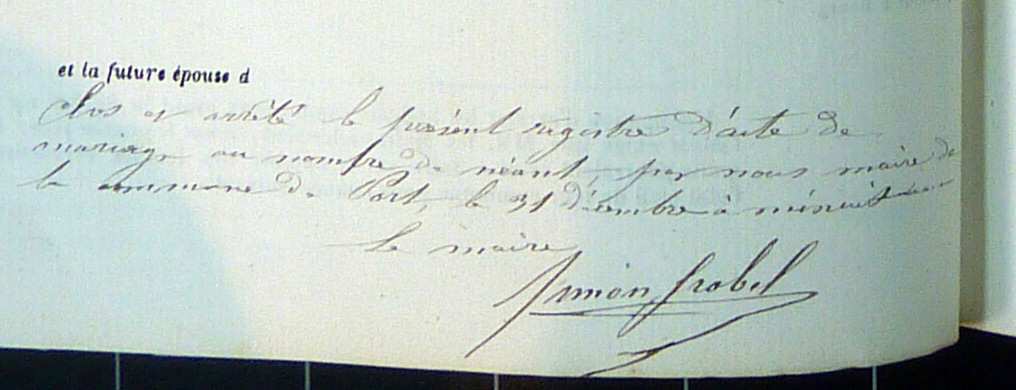 et la future épouse d
Clos et arrêté le présent registre d'acte de
mariage au nombre de néant, par nous maire de
la commune de Port, le 31 décembre à minuit
le maire
Simon